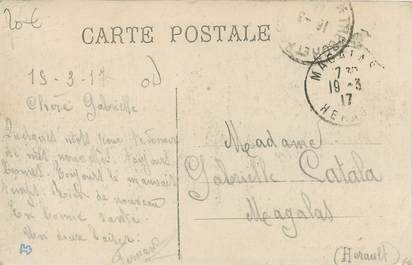 20€
CARTE POSTALE
MAGALAS
19-3
17
HERAULT
19-3-17
Chère Gabrielle
Quelques mots pour te donner
de mes nouvelles. Toujours
bonnes. Toujours le mauvais
temps. Rien de nouveau
En bonne santé.
Un doux baiser.
Fernand
Madame
Gabrielle Catala
Magalas
(Hérault)